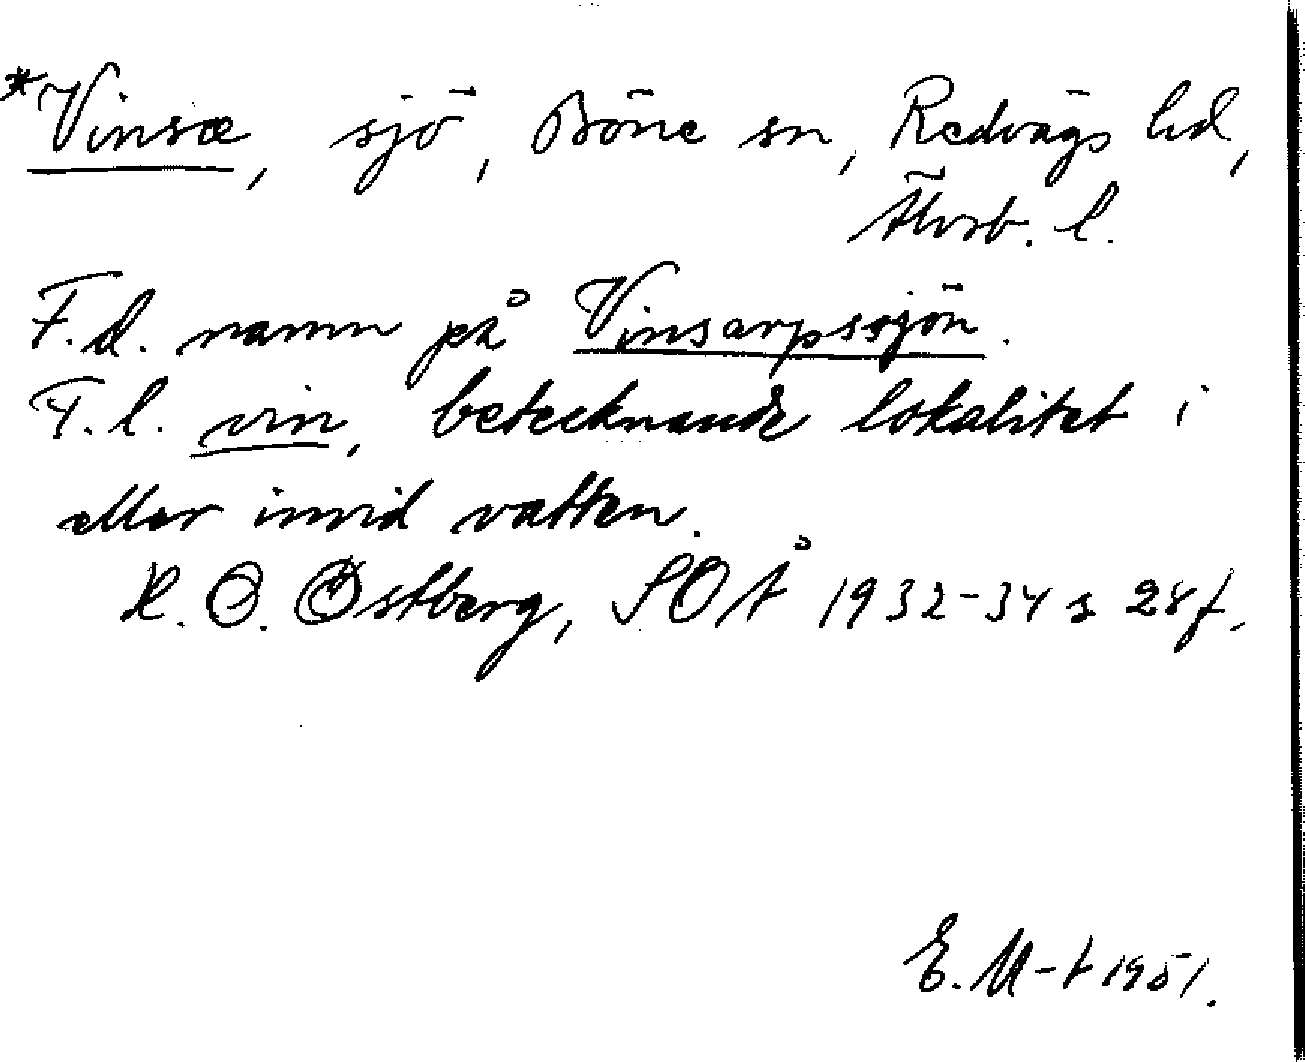 *Vinsæ, sjö, Böne sn, Redvägs hd,
Älvsb. l.
F.d. namn på Vinsarpssjön.
T.l. vin, betecknande lokalitet i
eller invid vatten.
K. O. Östberg, SOÅ 1932-34 s 28f.
E. M-t 1951.